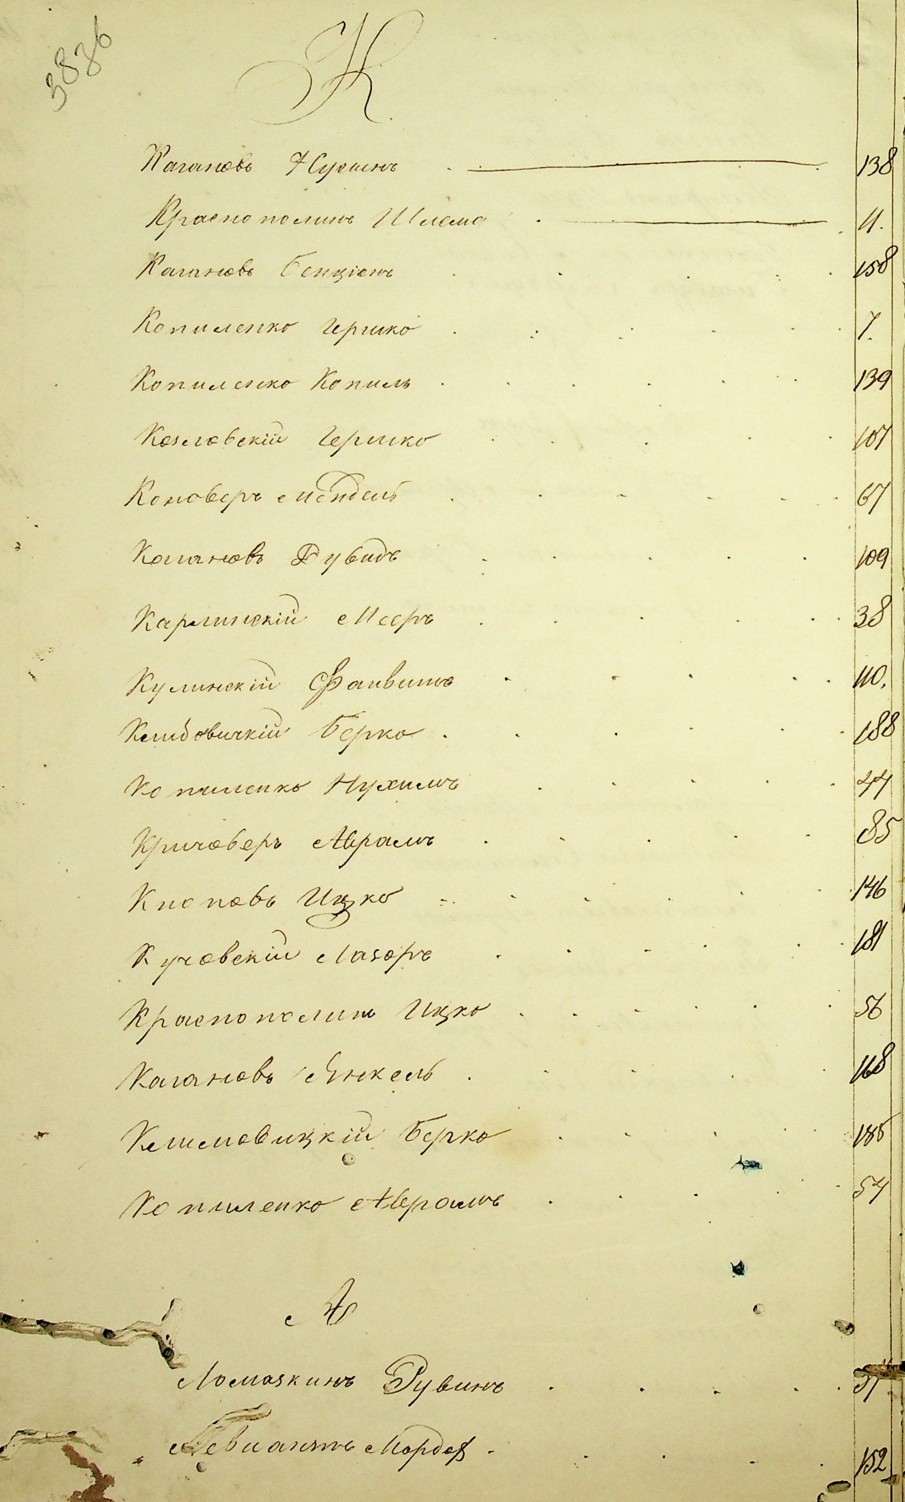 К
Кагановъ Нусинъ 138
Краснополинъ Шлема 11.
Кагановъ Бенціонъ 158
Копиленко Гершко 7.
Копиленко Копиль 139
Козловскій Гершко 107
Коноверъ Мендель 67
Когановъ Рувинъ 109
Карлинскій Мееръ 38
Кулинскій Файвишъ 110.
Берко 188
Копиленко Нухимъ 44
Кричеверъ Аврамъ 85
Кноповъ Ицко 146
Кучевскій Лазоръ 181
Краснополинъ Ицко 56
Кагановъ Янкель 168
Климовицкій Берко 186
Копиленко Аврамъ 54
Л
Ломазкинъ Рувинъ
Левиантъ Мордох 152